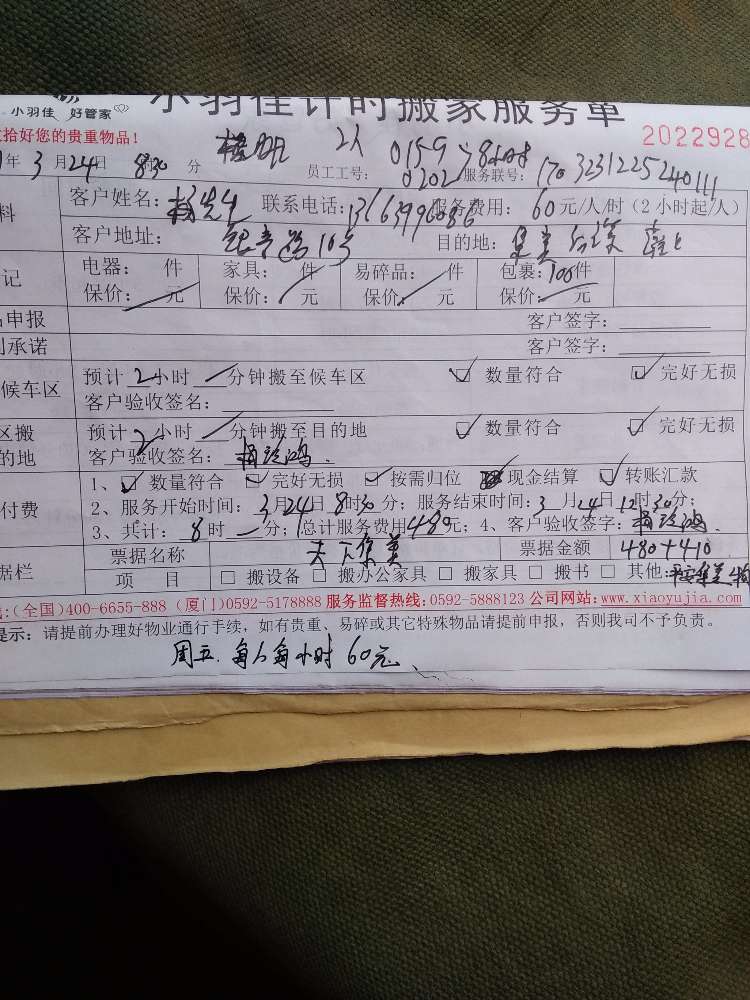 小羽佳 好管家
小羽佳计时搬家服务单
拾好您的贵重物品！
2022928
2人 0159 8小时
年3月24日 8时30分 员工工号： 0202 服务联号：1703231225240111
料 客户姓名：杨先生 联系电话： 服务费用：60元/人/时（2小时起/人）
客户地址： 目的地：集美
记 电器： 件 家具： 件 易碎品： 件 包裹：100件
保价： 元 保价： 元 保价： 元 保价： 元
申报 客户签字：
承诺 客户签字：
候车区 预计2小时 分钟搬至候车区 ☑ 数量符合 ☑ 完好无损
客户验收签名：
区搬 预计2小时 分钟搬至目的地 ☑ 数量符合 ☑ 完好无损
的地 客户验收签名：
1、☑ 数量符合 ☑ 完好无损 ☑ 按需归位 现金结算 ☑ 转账汇款
付费 2、服务开始时间：3月24日8时30分；服务结束时间：3月24日12时30分；
3、共计：8时 分；总计服务费用480元；4、客户验收签字：
据栏 票据名称 天下集美 票据金额 480+410
项 目 □ 搬设备 □ 搬办公家具 □ 搬家具 □ 搬书 □ 其他：
（全国）400-6655-888（厦门）0592-5178888 服务监督热线：0592-5888123 公司网站：www.xiaoyujia.com
提示：请提前办理好物业通行手续，如有贵重、易碎或其它特殊物品请提前申报，否则我司不予负责。
周五.每人每小时60元